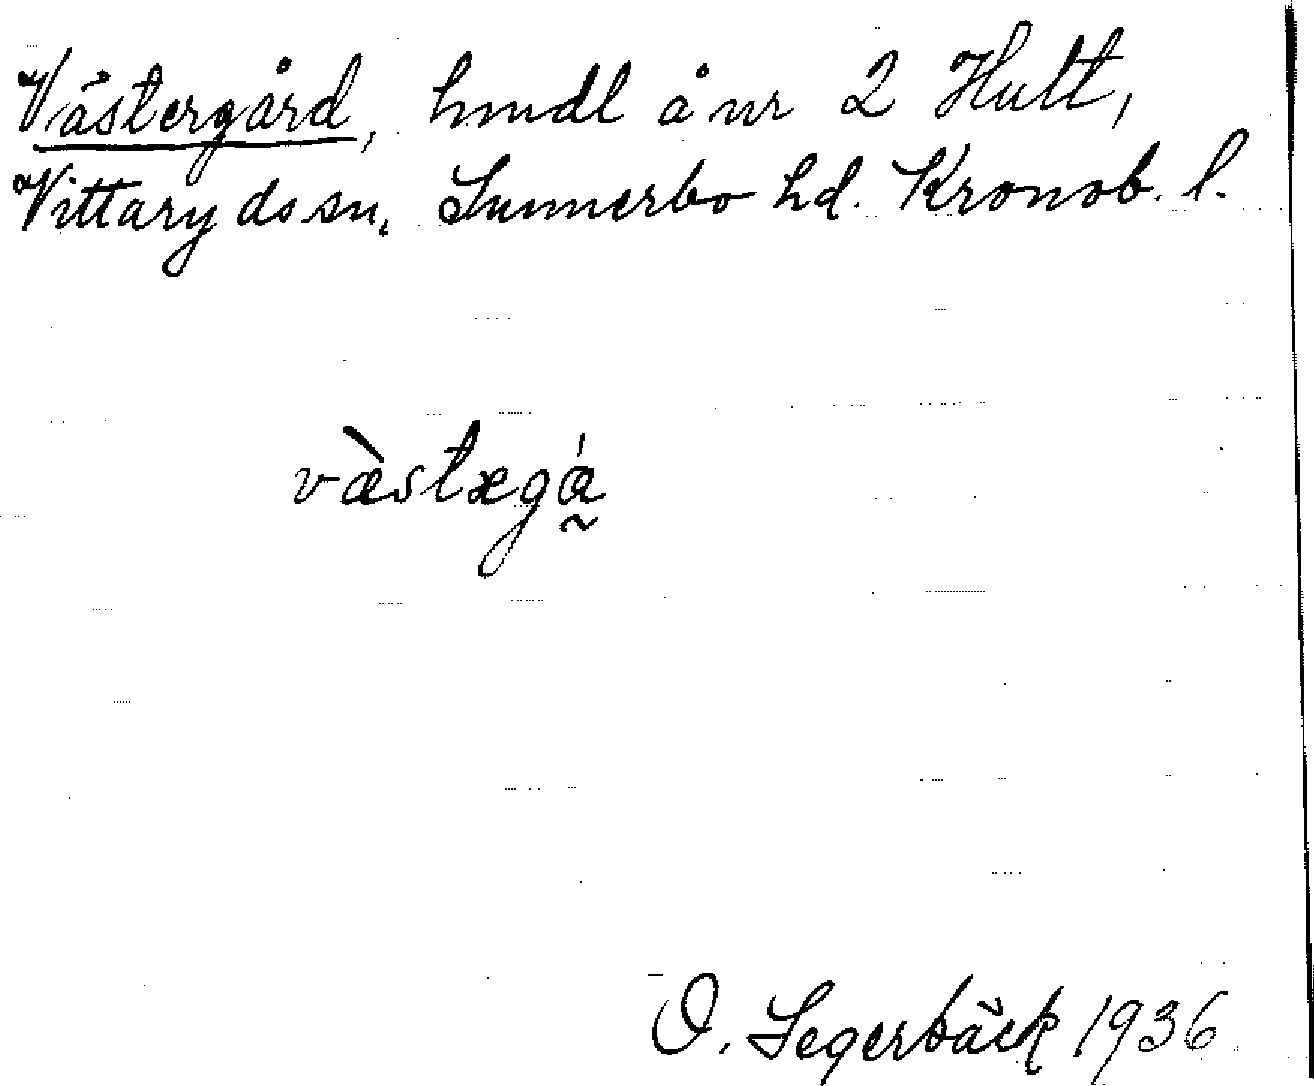 Västergård, hmdl å nr 2 Hult,
Vittaryds sn, Sunnerbo hd. Kronob. l.
væ̀stægá̰
O. Segerbäck 1936